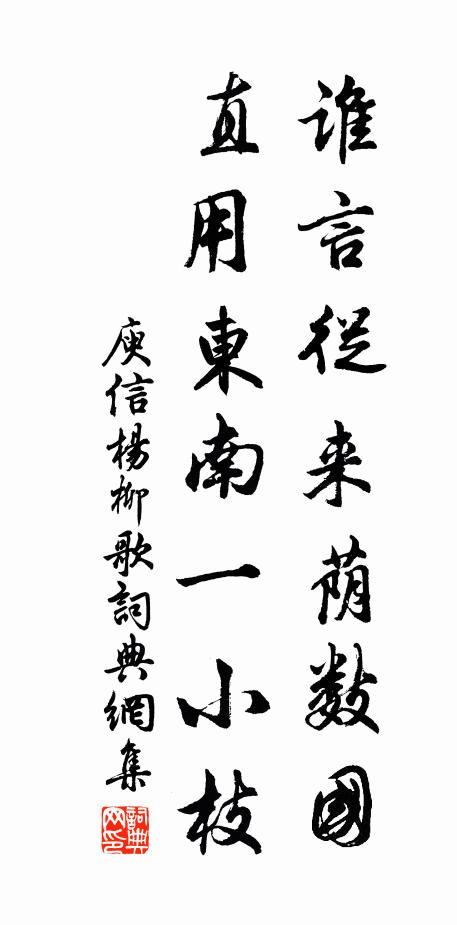 谁言從来荫數國
直用東南一小枝
庾信楊柳歌詞典網集
詞典网印